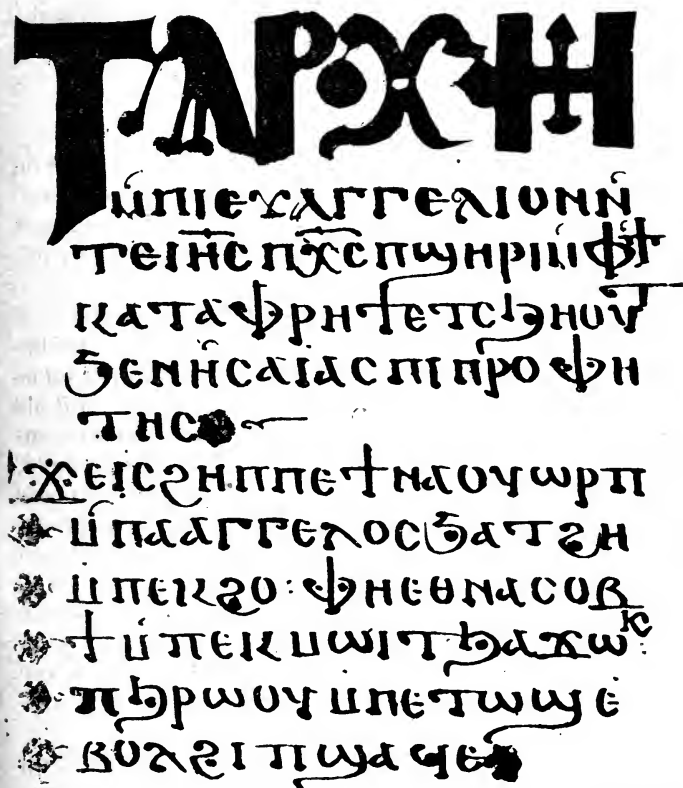 ⲦⲀⲢⲬⲎ
ⲙ̀ⲡⲓⲉⲩⲁⲅⲅⲉⲗⲓⲟⲛⲛ̀
ⲧⲉⲓⲏ̅ⲥ̅ⲡⲭ̅ⲥ̅ⲡϣⲏⲣⲓⲙ̀ⲫϯ
ⲕⲁⲧⲁⲫⲣⲏϯⲉⲧⲥϧⲏⲟⲩⲧ
ϧⲉⲛⲏ̀ⲥⲁⲓⲁⲥⲡⲓⲡⲣⲟⲫⲏ
ⲧⲏⲥ
ϫⲉⲓⲥϩⲏⲡⲡⲉϯⲛⲁⲟⲩⲱⲣⲡ
ⲙ̀ⲡⲁⲁⲅⲅⲉⲗⲟⲥϧⲁⲧϩⲏ
ⲙ̀ⲡⲉⲕϩⲟ:ⲫⲏⲉⲑⲛⲁⲥⲟⲃ
ϯⲙ̀ⲡⲉⲕⲙⲱⲓⲧϧⲁϫⲱⲕ
ⲡϧⲣⲱⲟⲩⲙⲡⲉⲧⲱϣⲉ
ⲃⲟⲗϩⲓⲡϣⲁϥⲉ